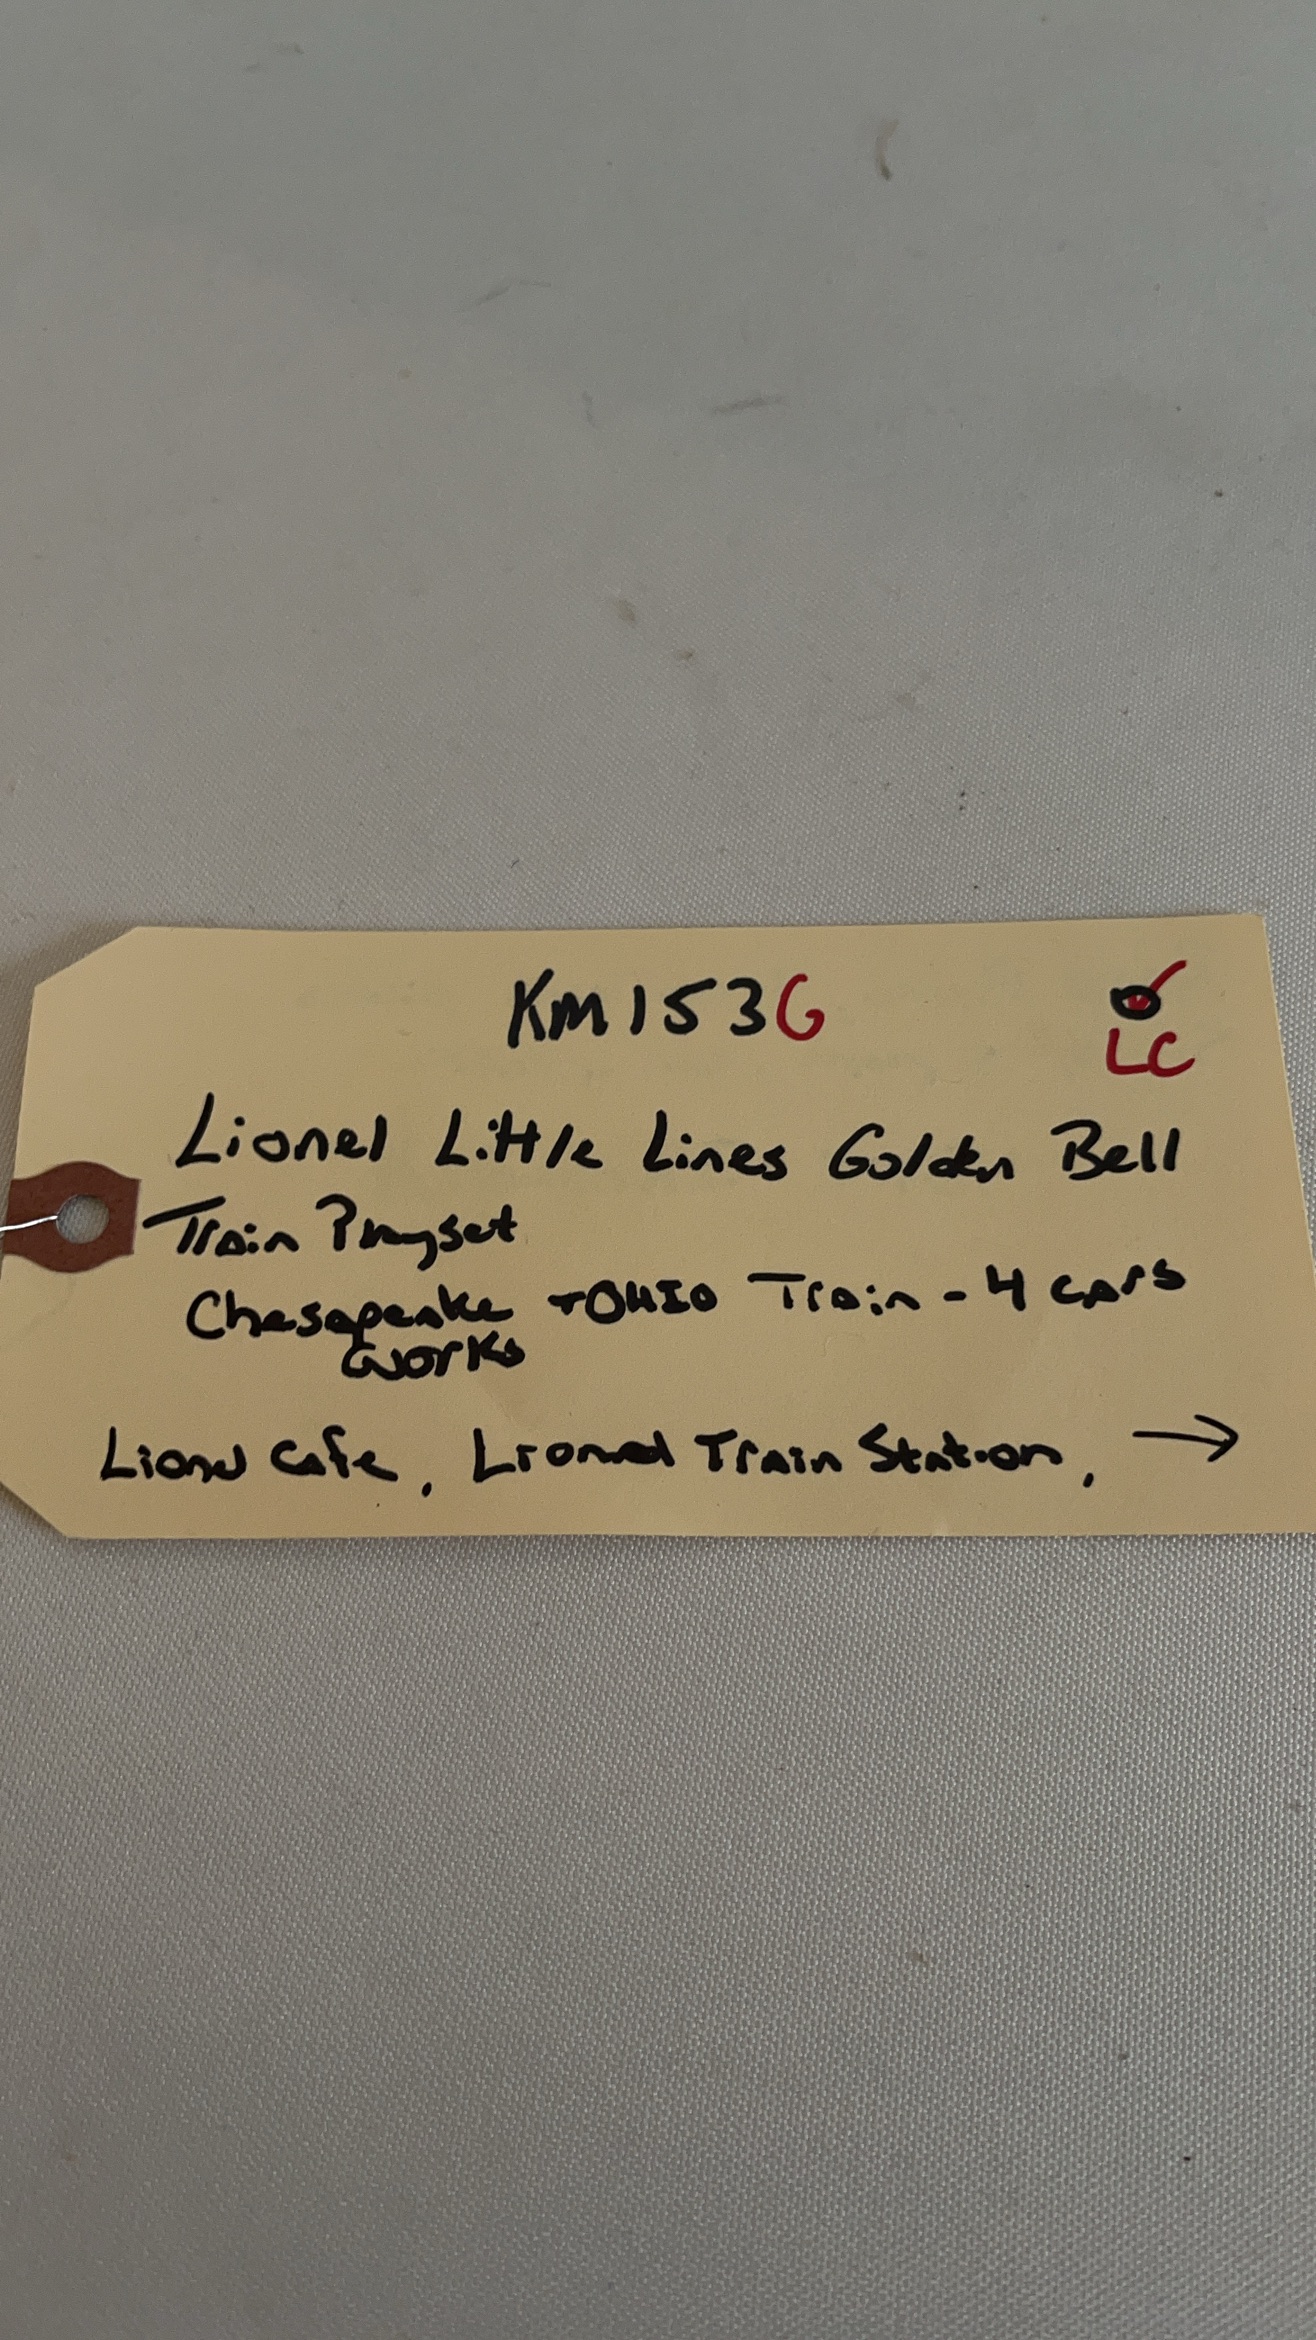 KM153G
LC
Lionel Little Lines Golden Bell
Train Playset
Chesapeake + OHIO Train - 4 cars
works
Lionel Cafe, Lionel Train Station, →